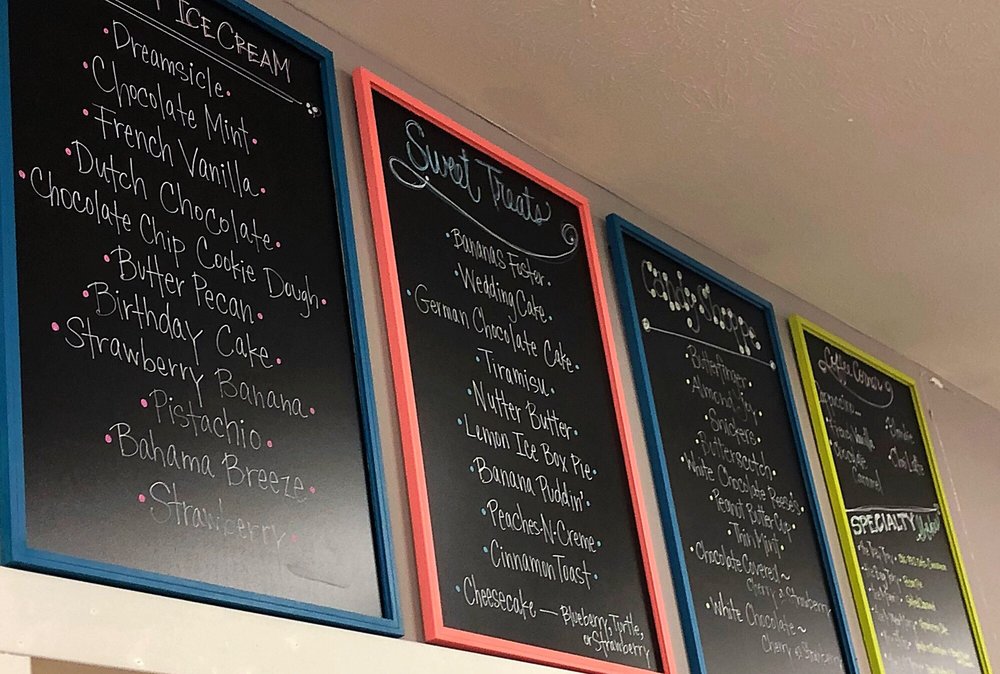 ICE CREAM
• Dreamsicle •
• Chocolate Mint •
• French Vanilla •
• Dutch Chocolate •
• Chocolate Chip Cookie Dough •
• Butter Pecan •
• Birthday Cake •
• Strawberry Banana •
• Pistachio •
• Bahama Breeze •
• Strawberry •
Sweet Treats
• Bananas Foster •
• Wedding Cake •
• German Chocolate Cake •
• Tiramisu •
• Nutter Butter •
• Lemon Ice Box Pie •
• Banana Puddin' •
• Peaches-N-Creme •
• Cinnamon Toast •
• Cheesecake — Blueberry, Turtle,
or Strawberry
Candy Shoppe
• Butterfinger •
• Almond Joy •
• Snickers •
• Butterscotch •
• White Chocolate Reese's •
• Peanut Butter Cup •
• Thin Mint •
• Chocolate Covered ~
Cherry or Strawberry
• White Chocolate ~
Cherry or Strawberry
Coffee Corner
French Vanilla
Chocolate
Caramel
Chai Latte
SPECIALTY